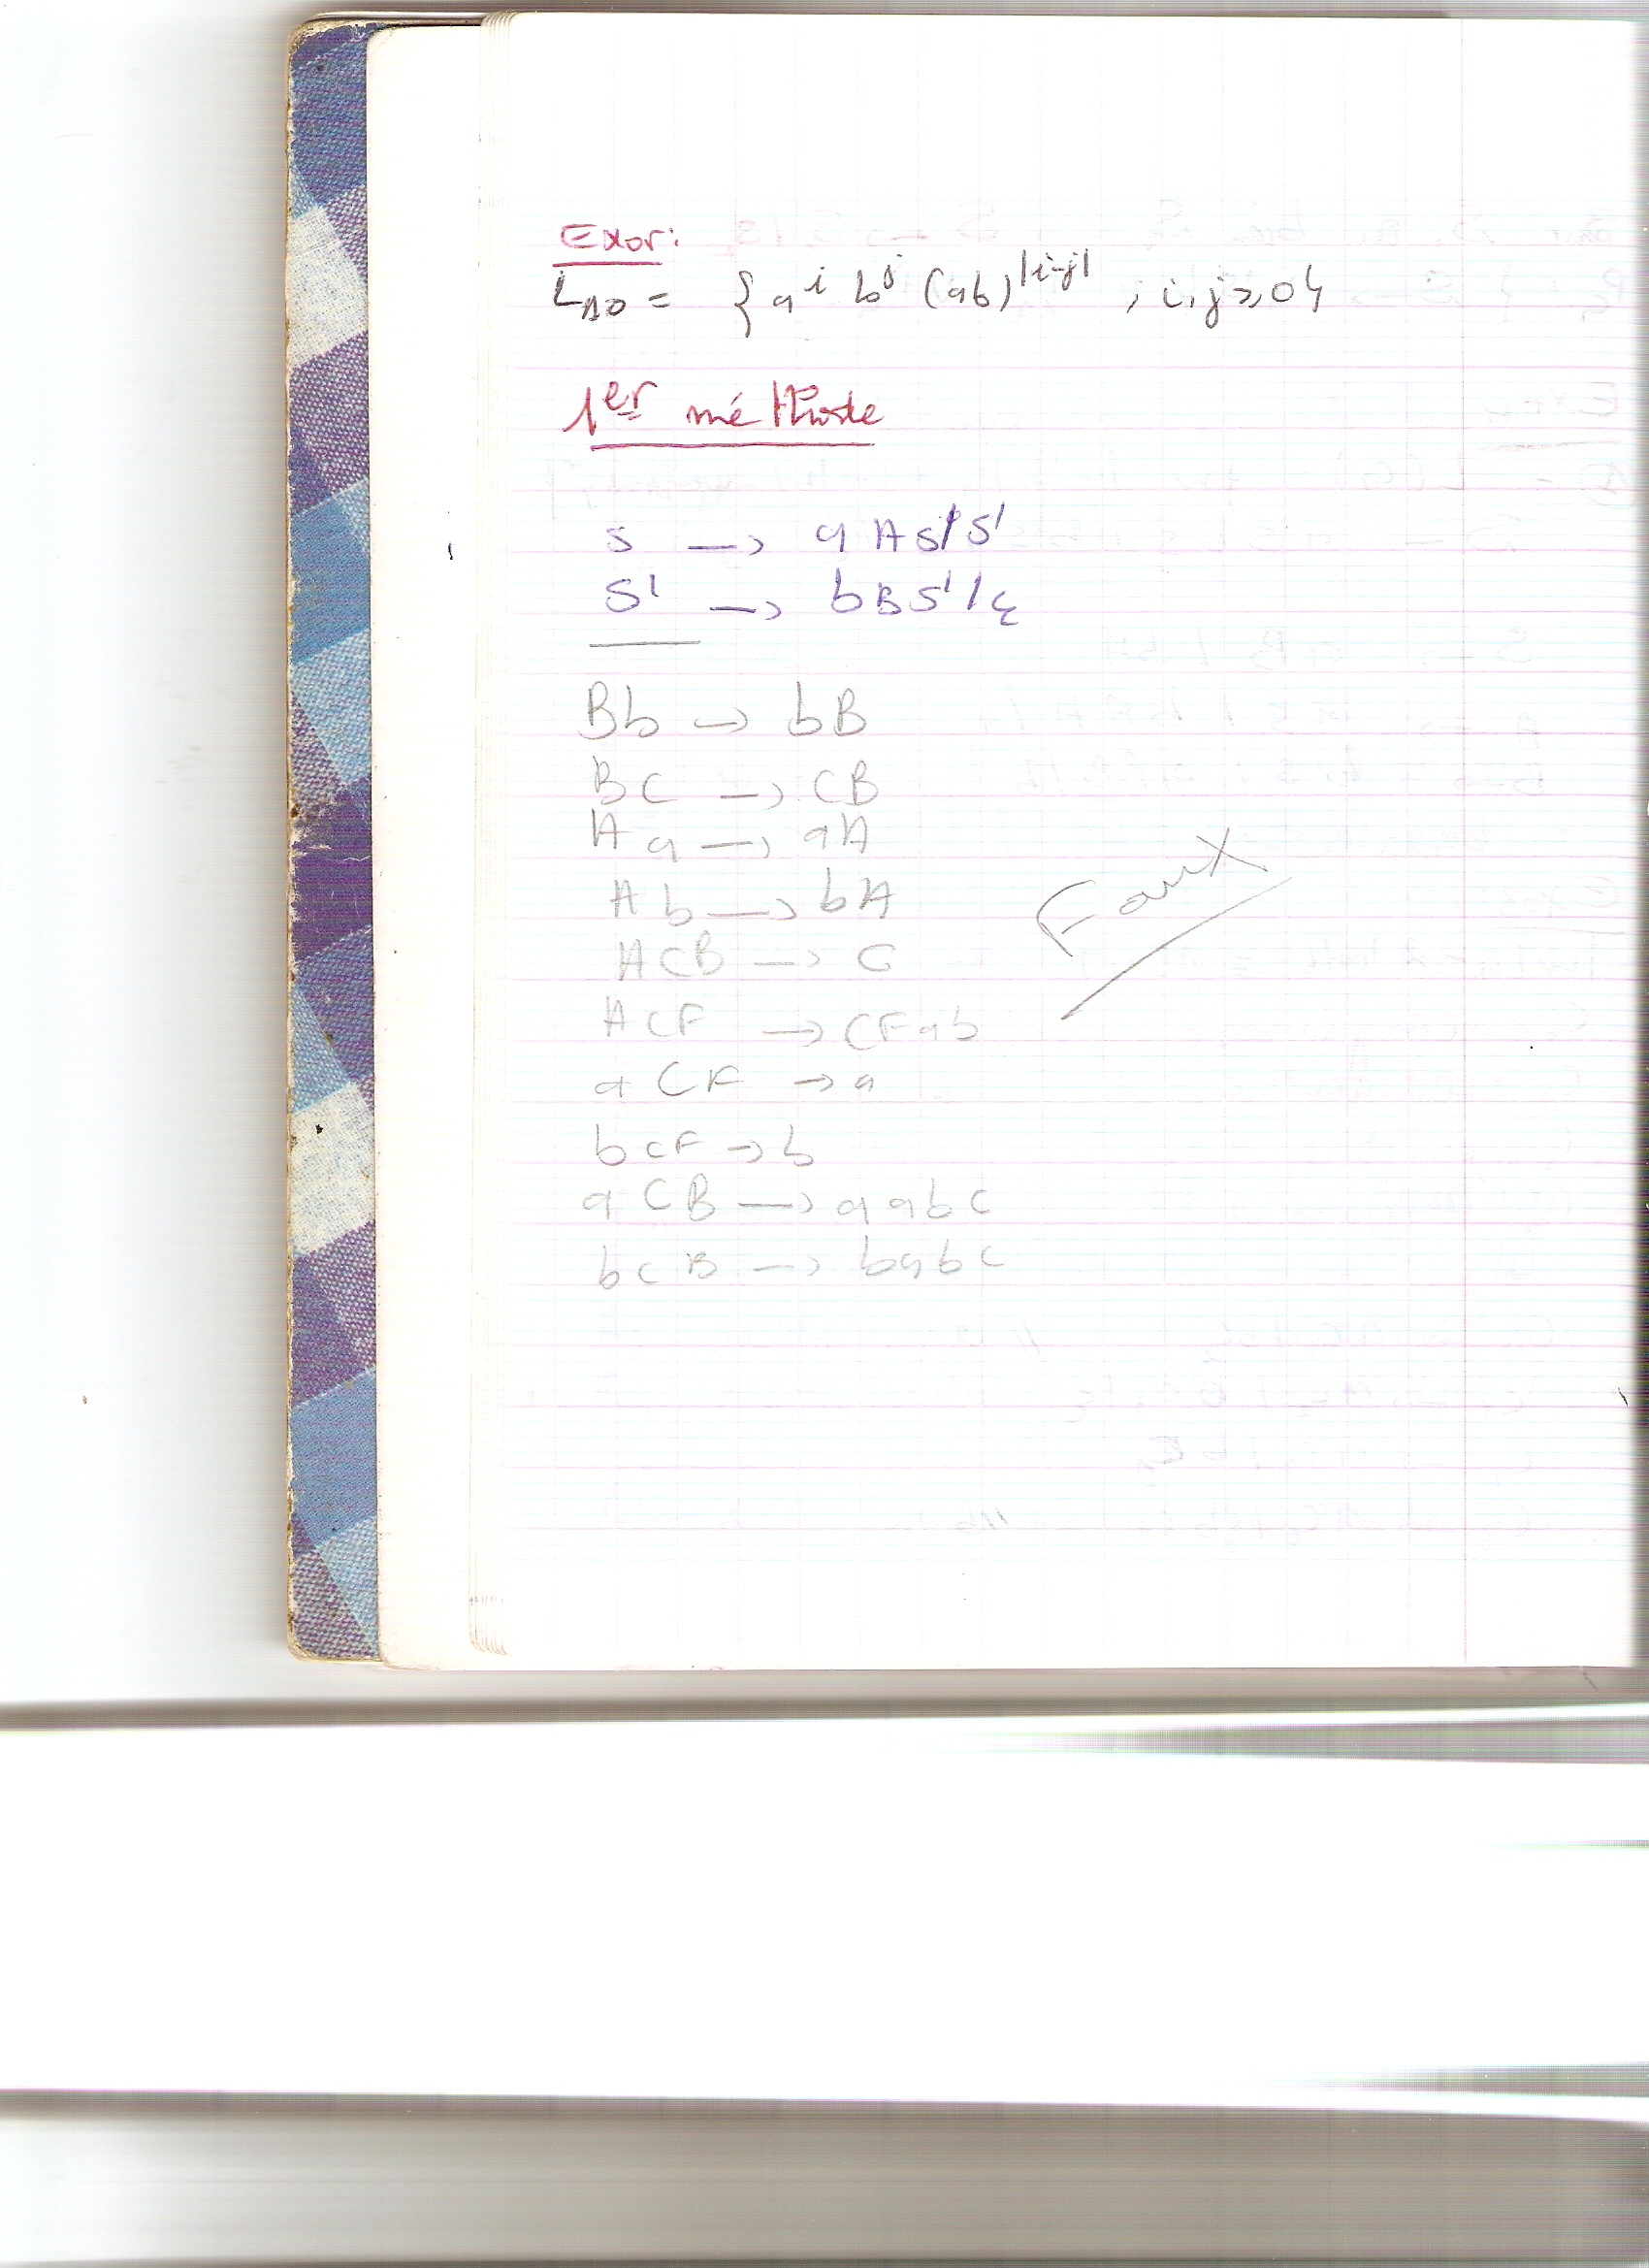 Exor:
L10 = { a^i b^j (ab)^|i-j| , i,j ≥ 0 }
1er méthode
S → aAS/S'
S' → bBS'/ε
Bb → bB
BC → CB
Aa → aA
Ab → bA
ACB → C
ACF → CFab
Faux
aCF → a
bCF → b
aCB → aabC
bCB → babC